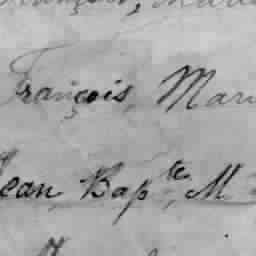 François, Mari
Jean, Bapte, M